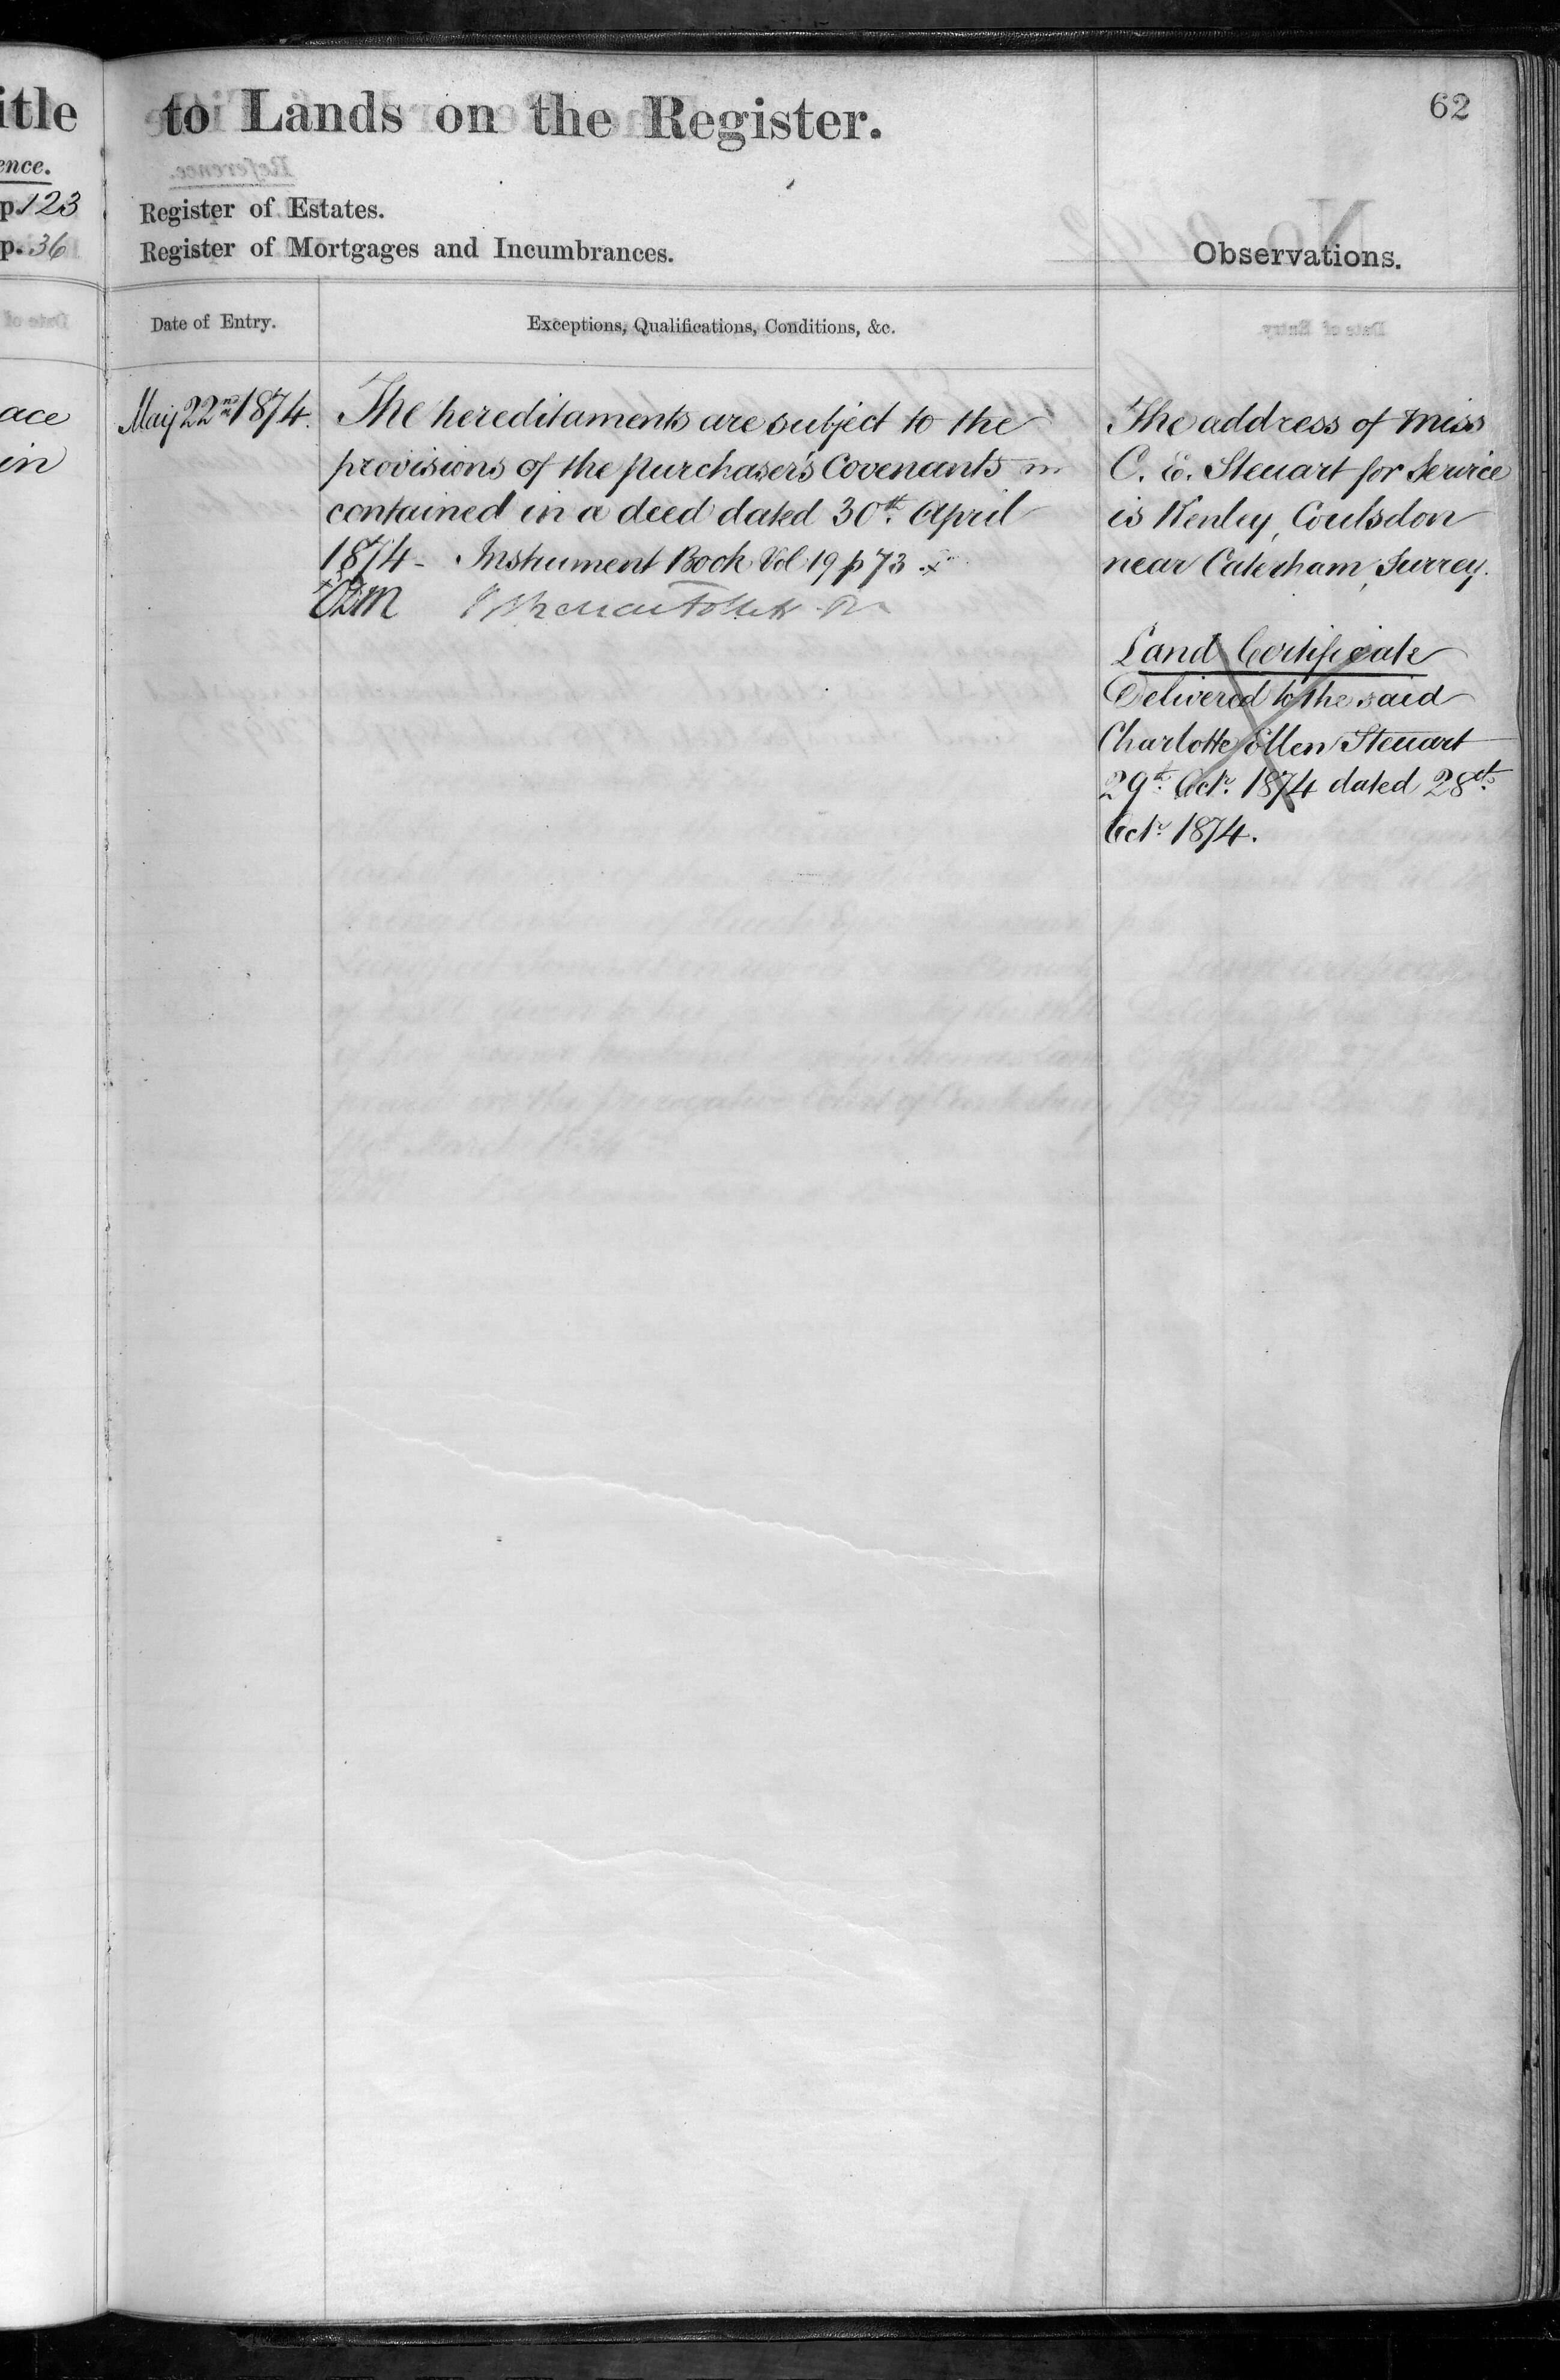 itle
ence.
p. 123
p. 36
ace
in
to Lands on the Register.
62
Register of Estates.
Register of Mortgages and Incumbrances.
Observations.
Date of Entry.
Exceptions, Qualifications, Conditions, &c.
May 22nd 1874.
The hereditaments are subject to the
provisions of the purchaser's Covenants
contained in a deed dated 30th. April
1874 - Instrument Book Vol 19 p 73
The address of Miss
C. E. Steuart for Service
is Kenley, Coulsdon
near Caterham, Surrey.
Land Certificate
Delivered to the said
Charlotte Ellen Steuart
29th. Octr. 1874 dated 28th.
Octr 1874.